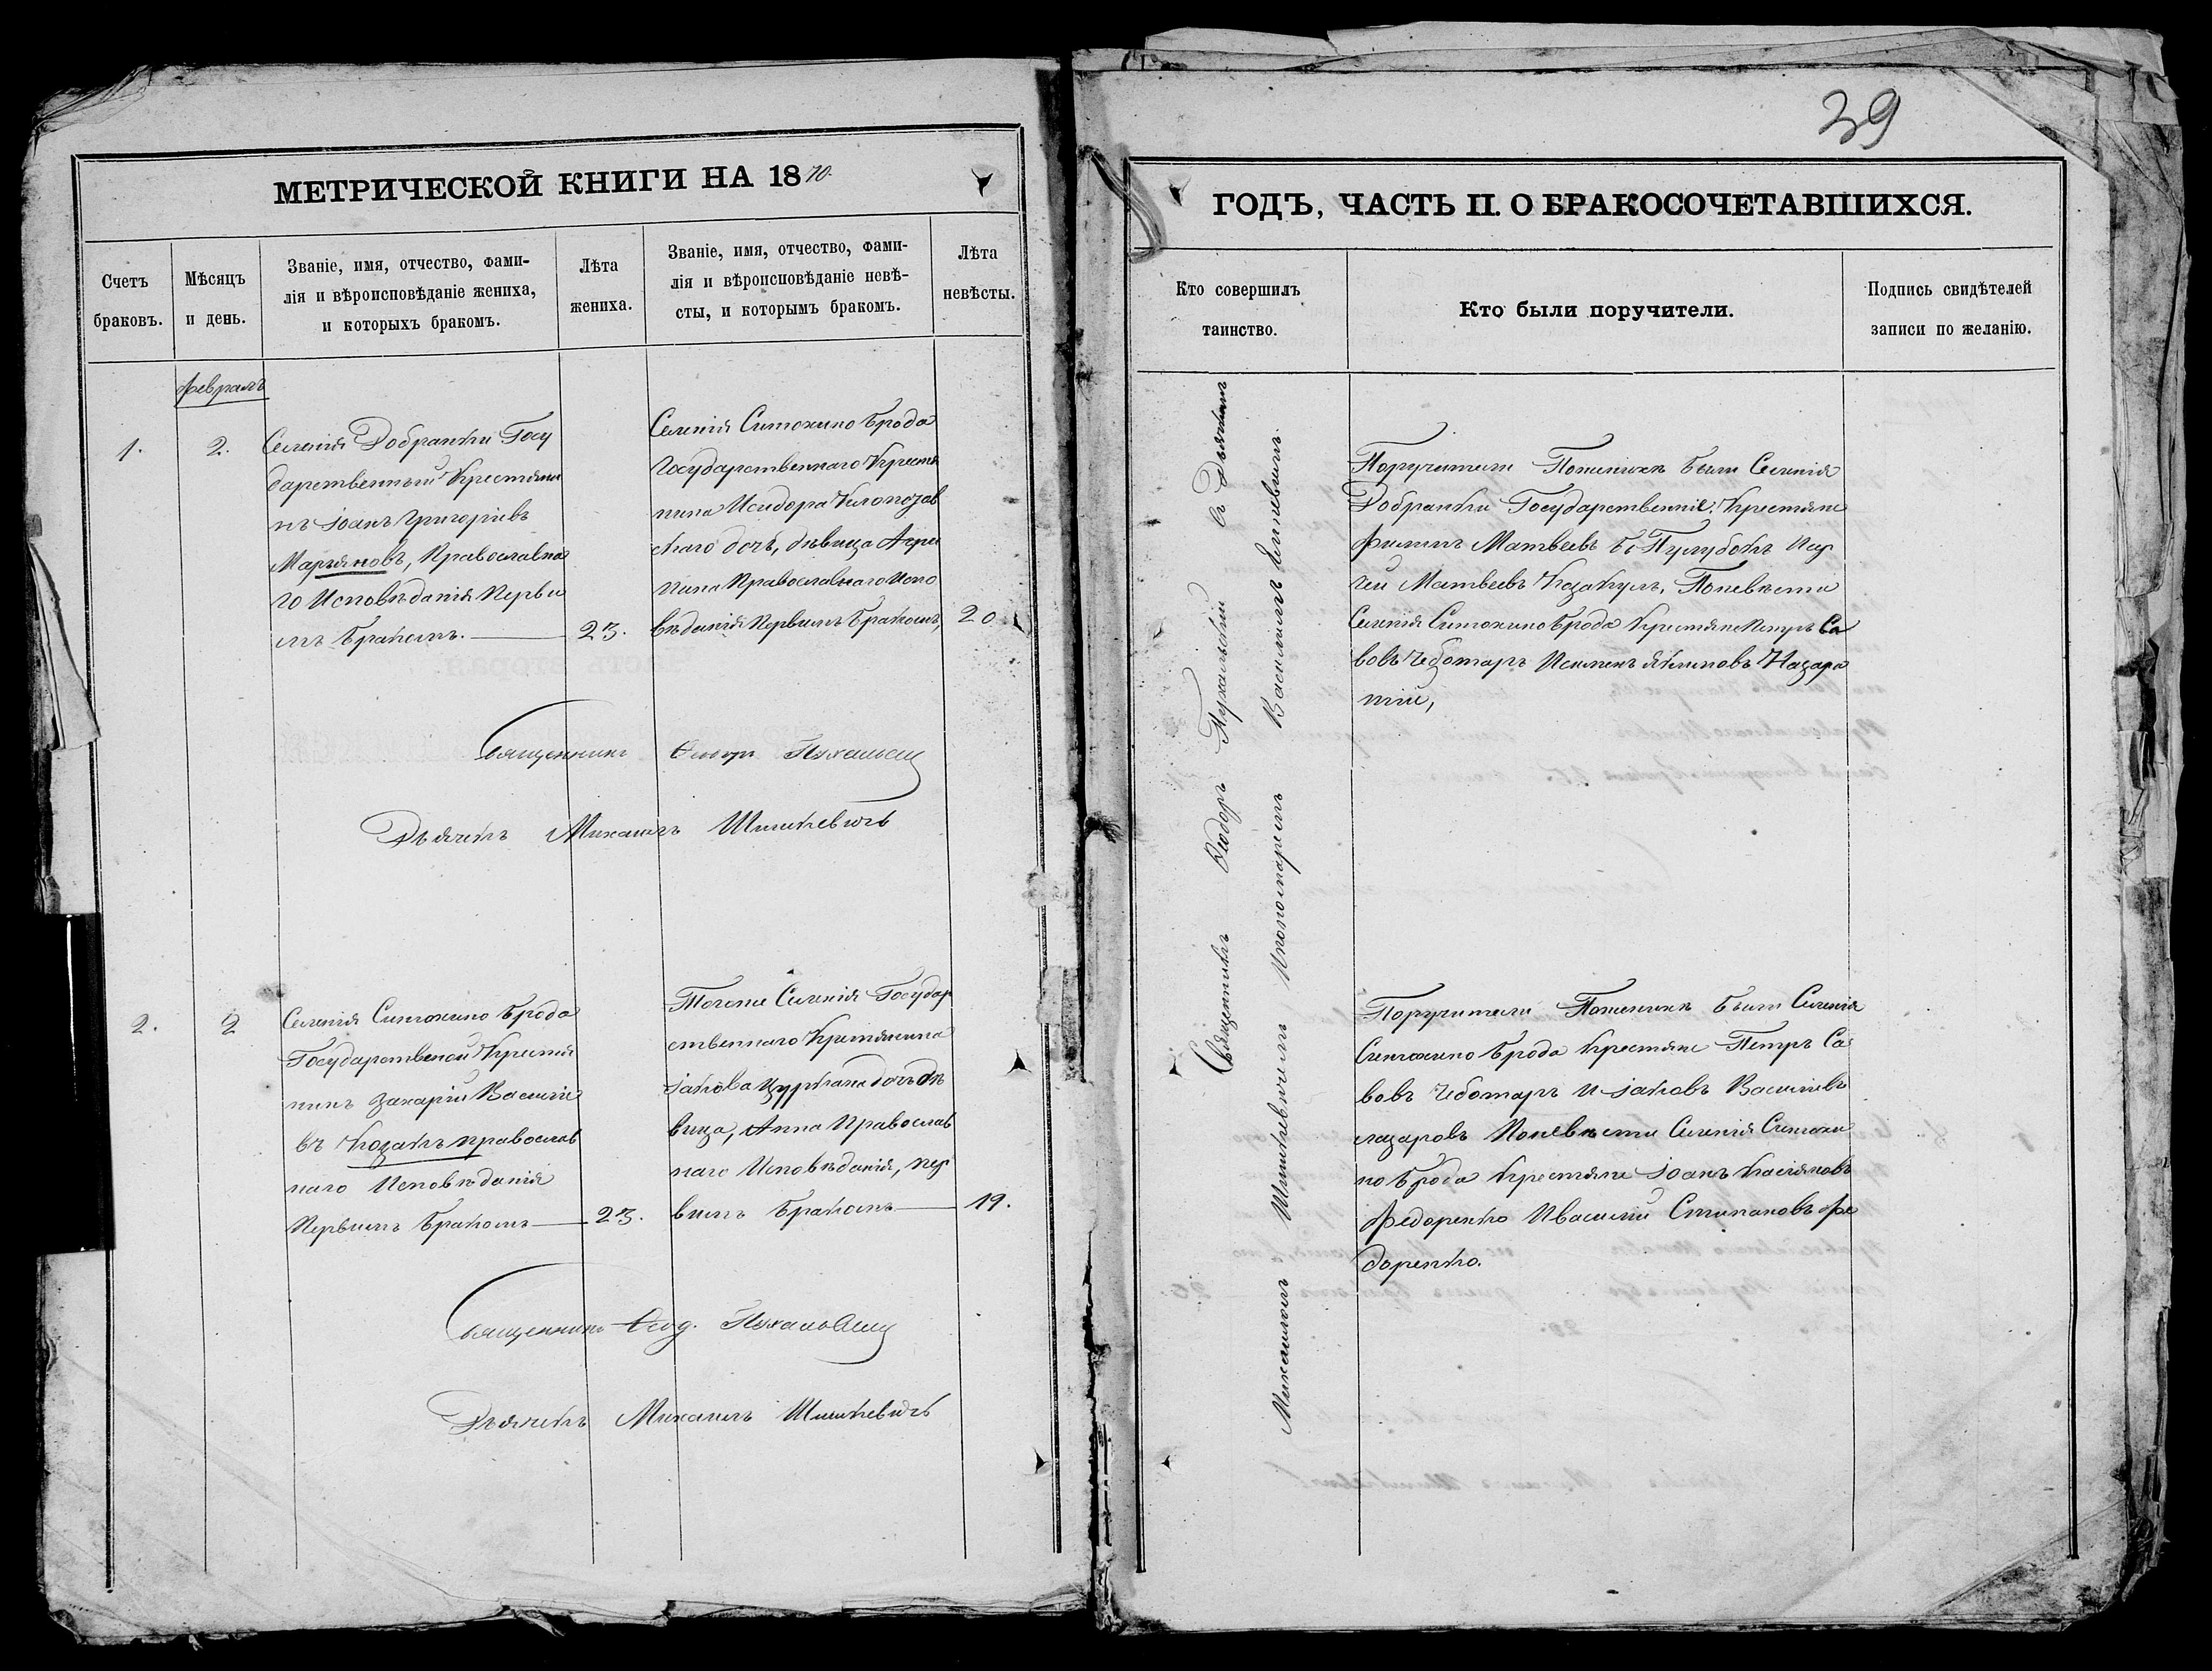 39
МЕТРИЧЕСКОЙ КНИГИ НА 1870.
Счетъ браковъ.
Мѣсяцъ и день.
Званіе, имя, отчество, фами-
лія и вѣроисповѣданіе жениха,
и которыхъ бракомъ.
Лѣта жениха.
Званіе, имя, отчество, фами-
лія и вѣроисповѣданіе невѣ-
сты, и которымъ бракомъ.
Лѣта невѣсты.
Февраль
1.
2.
Селенія Добранки Госу
дарственный Крестяни
нъ Іоанъ Григоріевъ
Марьяновъ, Православна
го Исповѣданія Первы
мъ Бракомъ.
23.
Селенія Синюхино Брода
Государственнаго Крестя
нина Исидора
скаго дочь, дѣвица Агри
пина Православнаго Испо
вѣданія Первымъ Бракомъ,
20.
Священникъ Феодоръ Пухальскій
Дьячекъ Михаилъ Шишкевичъ
2.
2
Селенія Синюхино Брода
Государственой Крестя
нинъ Захарій Василіе
въ Козакъ православ
наго Исповѣданія
Первымъ Бракомъ
23.
Тогоже Селенія Государ
ственнаго Крестянина
Іакова Цуркана дочь дѣ
вица, Анна Православ
наго Исповѣданія, пер
вымъ Бракомъ
19.
Священникъ Феод. Пухальскій
Дьячекъ Михаилъ Шишкевичъ
ГОДЪ, ЧАСТЬ II. О БРАКОСОЧЕТАВШИХСЯ.
Кто совершилъ таинство.
Кто были поручители.
Подпись свидѣтелей
записи по желанію.
Священникъ Феодоръ Пухальскій съ Дьячкомъ
Михаиломъ Шишкевичемъ Ипономаремъ Василіемъ
Поручители Поженихѣ были Селенія
Добранки Государственніе Крестяне
Филипъ Матвеевъ
Матвеевъ Поневѣсти
Селенія Синюхино Брода Крестяне Петръ Са
вовъ Чеботарь
Поручители Поженихѣ были Селенія
Синюхино Брода Крестяне Петръ Са
вовъ Чеботарь И Іаковъ Василіевъ
лазаровъ Поневѣсти Селенія Синюхи
но Брода Крестяне Іоанъ Касіяновъ
Федоренко Ивасилій Стипановъ Фе
доренко.